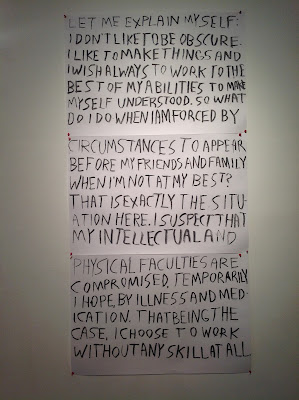 LET ME EXPLAIN MYSELF:
I DON'T LIKE TO BE OBSCURE.
I LIKE TO MAKE THINGS AND
I WISH ALWAYS TO WORK TO THE
BEST OF MY ABILITIES TO MAKE
MYSELF UNDERSTOOD. SO WHAT
DO I DO WHEN I AM FORCED BY
CIRCUMSTANCES TO APPEAR
BEFORE MY FRIENDS AND FAMILY
WHEN I'M NOT AT MY BEST?
THAT IS EXACTLY THE SITU-
ATION HERE. I SUSPECT THAT
MY INTELLECTUAL AND
PHYSICAL FACULTIES ARE
COMPROMISED, TEMPORARILY
I HOPE, BY ILLNESS AND MED-
ICATION. THAT BEING THE
CASE, I CHOOSE TO WORK
WITHOUT ANY SKILL AT ALL